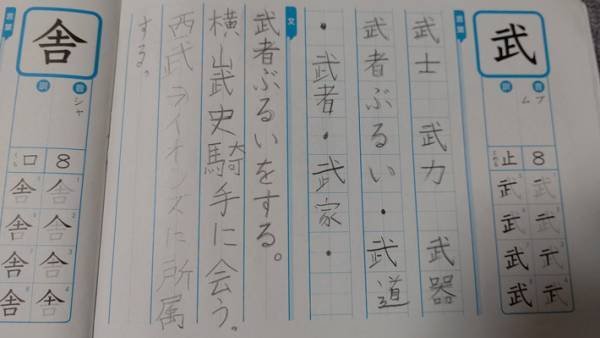 武
音 訓
ブ
ム
8
止
とめる
武 武
武 武
武 武
武 武
言葉
武士 武力 武器
武者ぶるい・武道
・武者・武家・
文
武者ぶるいをする。
横山武史騎手に会う。
西武ライオンズに所属
する。
舎
音 訓
シャ
8
口
くち
舎 舎
舎 舎
舎 舎
舎 舎
言葉